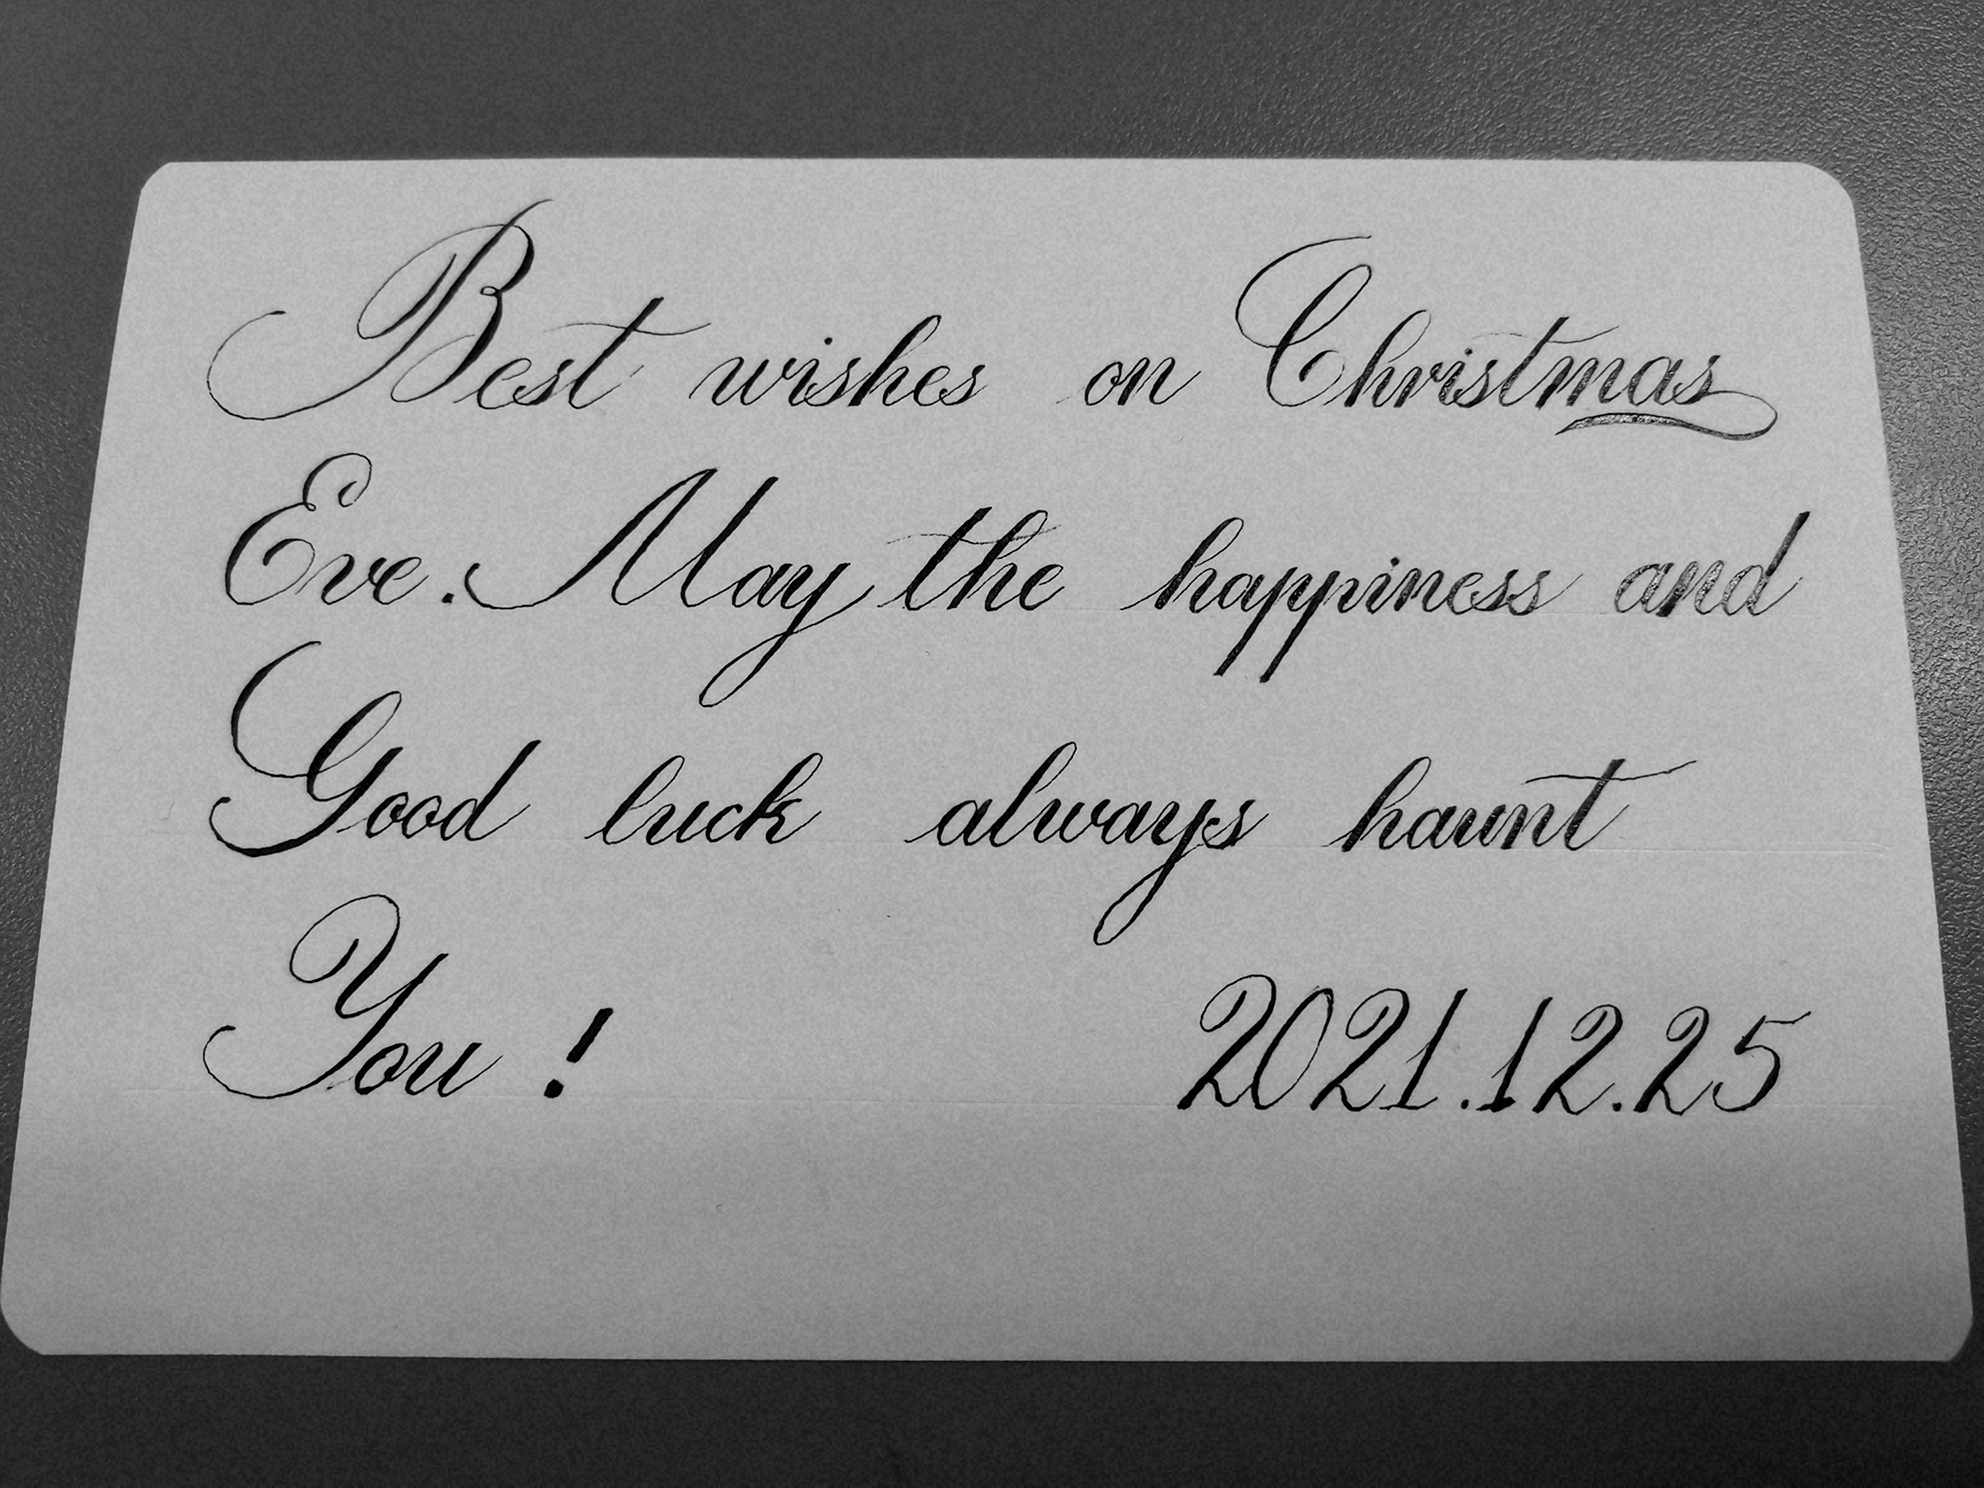 Best wishes on Christmas
Eve. May the happiness and
Good luck always haunt
You !
2021.12.25